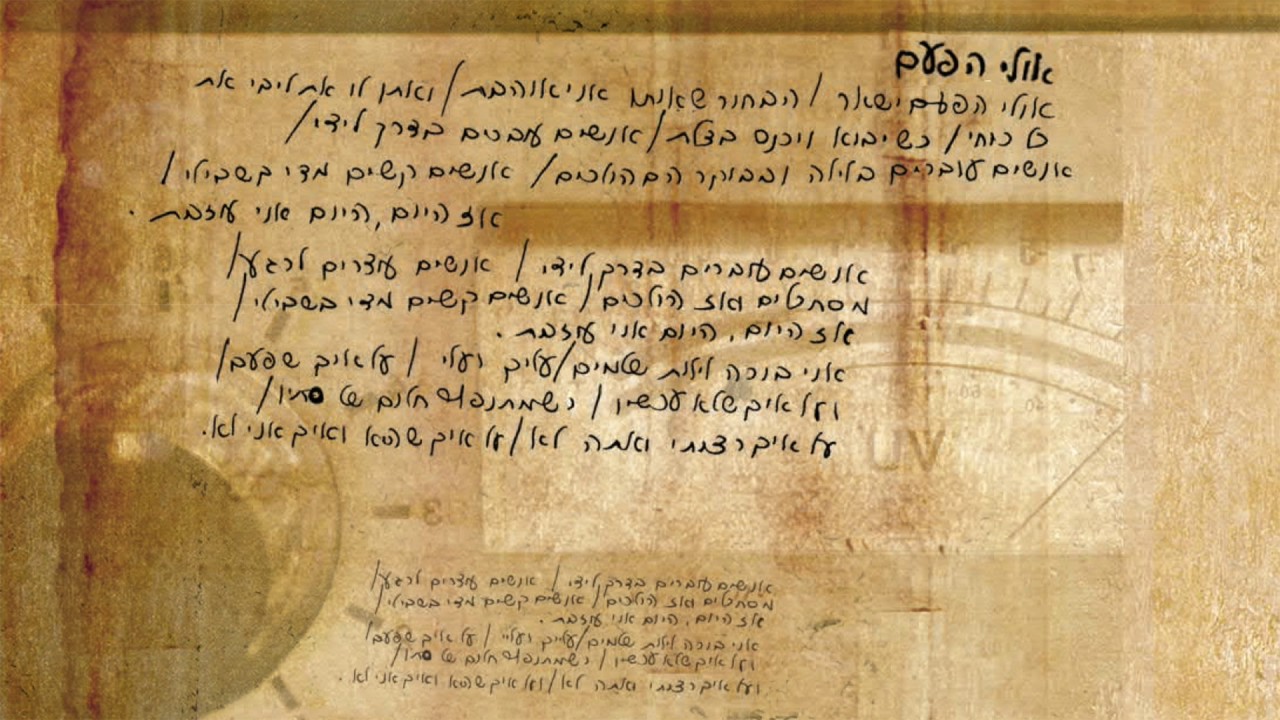 אולי הפעם
אולי הפעם ישאר / הבחור שאותו אני אוהבת / ואתן לו את ליבי את
כל כוחי / כשיבוא ויכנס בדלת / אנשים עוברים בדרך לידי /
אנשים עוברים בלילה ובבוקר הם הולכים / אנשים קשים מדי בשבילי /
אז היום, היום אני עוזבת.
אנשים עוברים בדרך לידי / אנשים עוצרים לרגע /
מסתכלים ואז הולכים / אנשים קשים מדי בשבילי /
אז היום, היום אני עוזבת.
אני בוכה לילות שלמים / עליך ועלי / על איך שפעם /
ועל איך שלא עכשיו / כשמתנפץ חלום של סתיו /
על איך רציתי ואתה לא / על איך שהיא ואיך אני לא.
אנשים עוברים בדרך לידי / אנשים עוצרים לרגע /
מסתכלים ואז הולכים / אנשים קשים מדי בשבילי /
אז היום, היום אני עוזבת.
אני בוכה לילות שלמים / עליך ועלי / על איך שפעם /
ועל איך שלא עכשיו / כשמתנפץ חלום של סתיו /
ועל איך רציתי ואתה לא / ועל איך שהיא ואיך אני לא.
VU